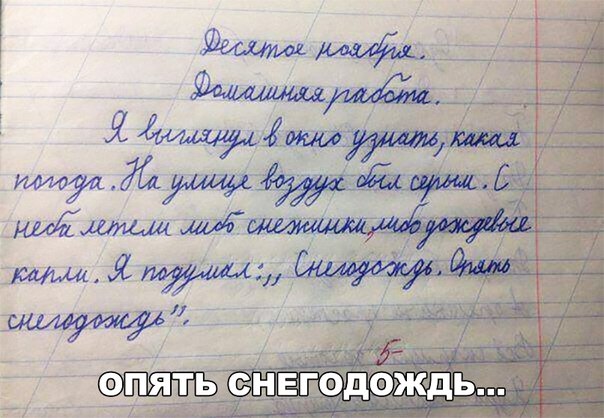 Десятое ноября.
Домашняя работа.
Я выглянул в окно узнать, какая
погода. На улице воздух был серым. С
неба летели либо снежинки, либо дождевые
капли. Я подумал: „Снегодождь. Опять
снегодождь".
5-
ОПЯТЬ СНЕГОДОЖДЬ...